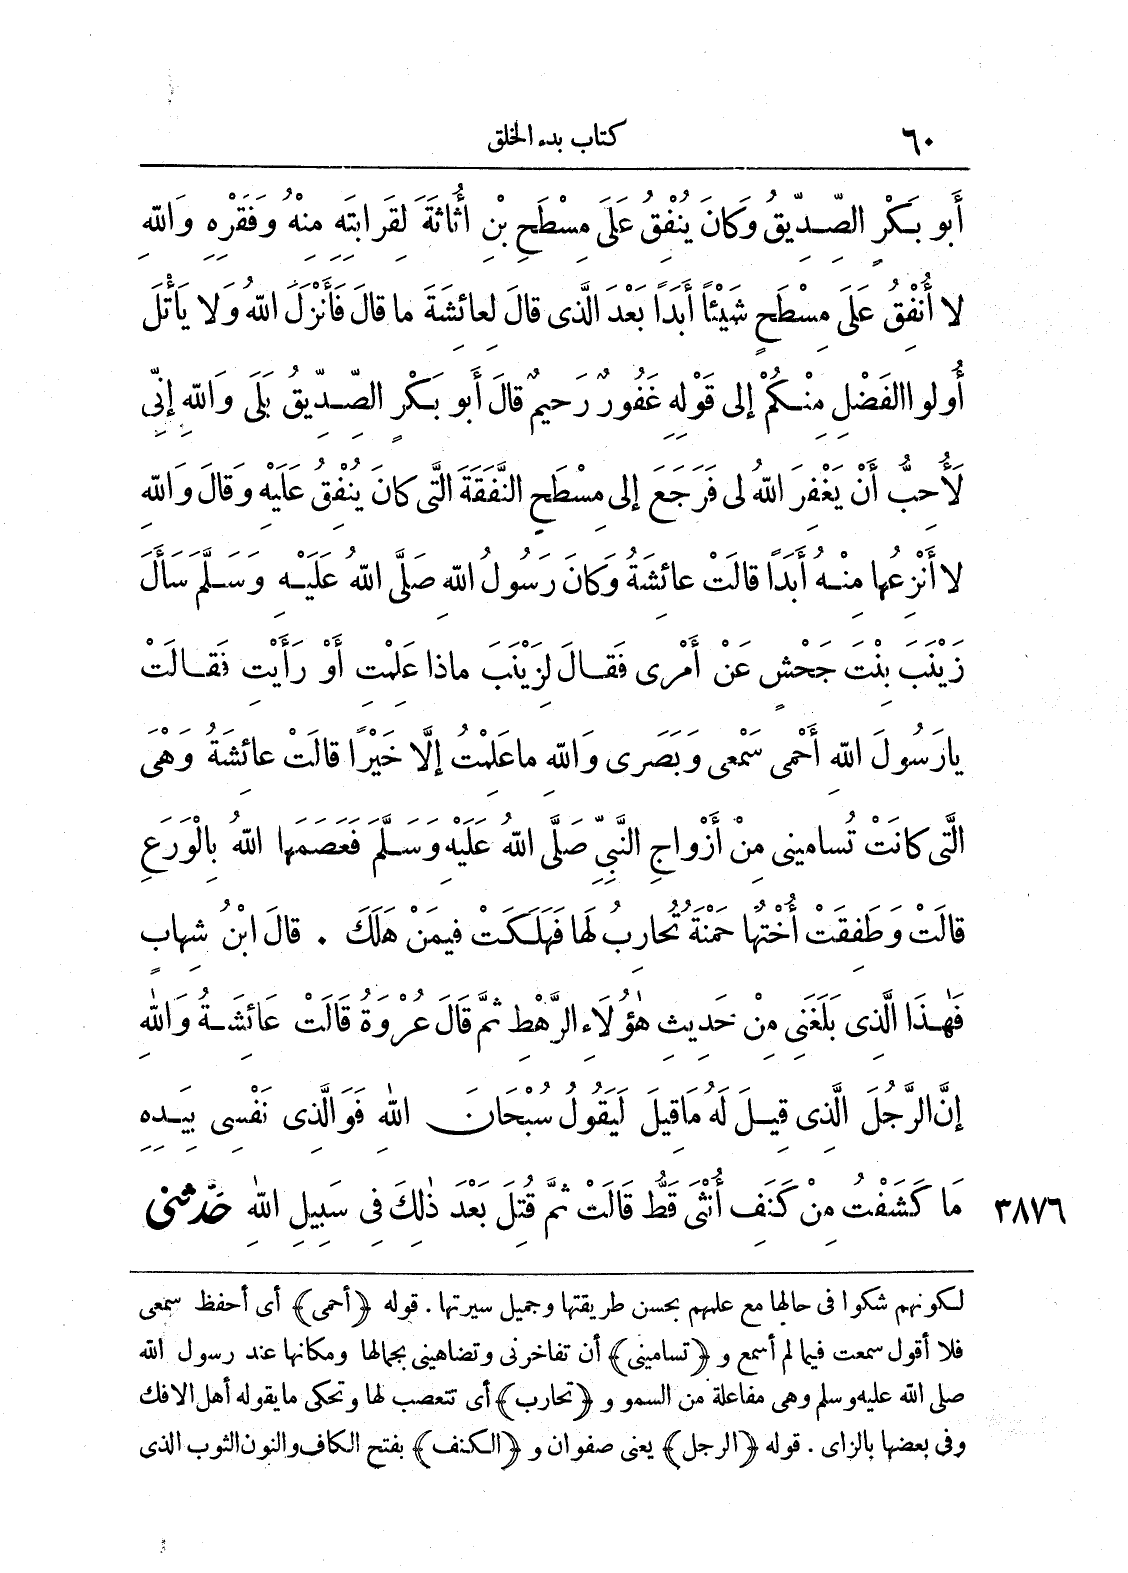 ٦٠ كتاب بدء الخلق
أَبو بَكْرٍ الصِّدِّيقُ وَكانَ يُنْفِقُ عَلَى مِسْطَحِ بْنِ أُثاثَةَ لِقَرابَتِهِ مِنْهُ وَفَقْرِهِ وَاللهِ
لا أُنْفِقُ عَلَى مِسْطَحٍ شَيْئًا أَبَدًا بَعْدَ الَّذى قالَ لِعائِشَةَ ما قالَ فَأَنْزَلَ اللهُ وَلا يَأْتَلِ
أُولوا الفَضْلِ مِنْكُمْ إلى قَوْلِهِ غَفُورٌ رَحيمٌ قالَ أَبو بَكْرٍ الصِّدِّيقُ بَلَى وَاللهِ إنِّى
لَأُحِبُّ أَنْ يَغْفِرَ اللهُ لى فَرَجَعَ إلى مِسْطَحٍ النَّفَقَةَ الَّتى كانَ يُنْفِقُ عَلَيْهِ وَقالَ وَاللهِ
لا أَنْزِعُها مِنْهُ أَبَدًا قالَتْ عائِشَةُ وَكانَ رَسُولُ اللهِ صَلَّى اللهُ عَلَيْهِ وَسَلَّمَ سَأَلَ
زَيْنَبَ بِنْتَ جَحْشٍ عَنْ أَمْرى فَقالَ لِزَيْنَبَ ماذا عَلِمْتِ أَوْ رَأَيْتِ فَقالَتْ
يارَسُولَ اللهِ أَحْمى سَمْعى وَبَصَرى وَاللهِ ماعَلِمْتُ إلَّا خَيْرًا قالَتْ عائِشَةُ وَهْىَ
الَّتى كانَتْ تُسامينى مِنْ أَزْواجِ النَّبِىِّ صَلَّى اللهُ عَلَيْهِ وَسَلَّمَ فَعَصَمَها اللهُ بِالْوَرَعِ
قالَتْ وَطَفِقَتْ أُخْتُها حَمْنَةُ تُحارِبُ لَها فَهَلَكَتْ فيمَنْ هَلَكَ . قالَ ابْنُ شِهابٍ
فَهٰذَا الَّذِى بَلَغَنِى مِنْ حَدِيثِ هٰؤُلَاءِ الرَّهْطِ ثُمَّ قَالَ عُرْوَةُ قَالَتْ عَائِشَةُ وَاللهِ
إِنَّ الرَّجُلَ الَّذِى قِيلَ لَهُ مَا قِيلَ لَيَقُولُ سُبْحَانَ اللهِ فَوَالَّذِى نَفْسِى بِيَدِهِ
٣٨٧٦ مَا كَشَفْتُ مِنْ كَنَفِ أُنْثَى قَطُّ قَالَتْ ثُمَّ قُتِلَ بَعْدَ ذٰلِكَ فِى سَبِيلِ اللهِ حَدَّثَنِى
لكونهم شكوا فى حالها مع علمهم بحسن طريقتها وجميل سيرتها . قوله ﴿أحمى﴾ أى أحفظ سمعى
فلا أقول سمعت فيما لم أسمع و ﴿تسامينى﴾ أن تفاخرنى وتضاهينى بجمالها ومكانها عند رسول الله
صلى الله عليه وسلم وهى مفاعلة من السمو و ﴿تحارب﴾ أى تتعصب لها وتحكى ما يقوله أهل الافك
وفى بعضها بالزاى . قوله ﴿الرجل﴾ يعنى صفوان و ﴿الكنف﴾ بفتح الكاف والنون الثوب الذى